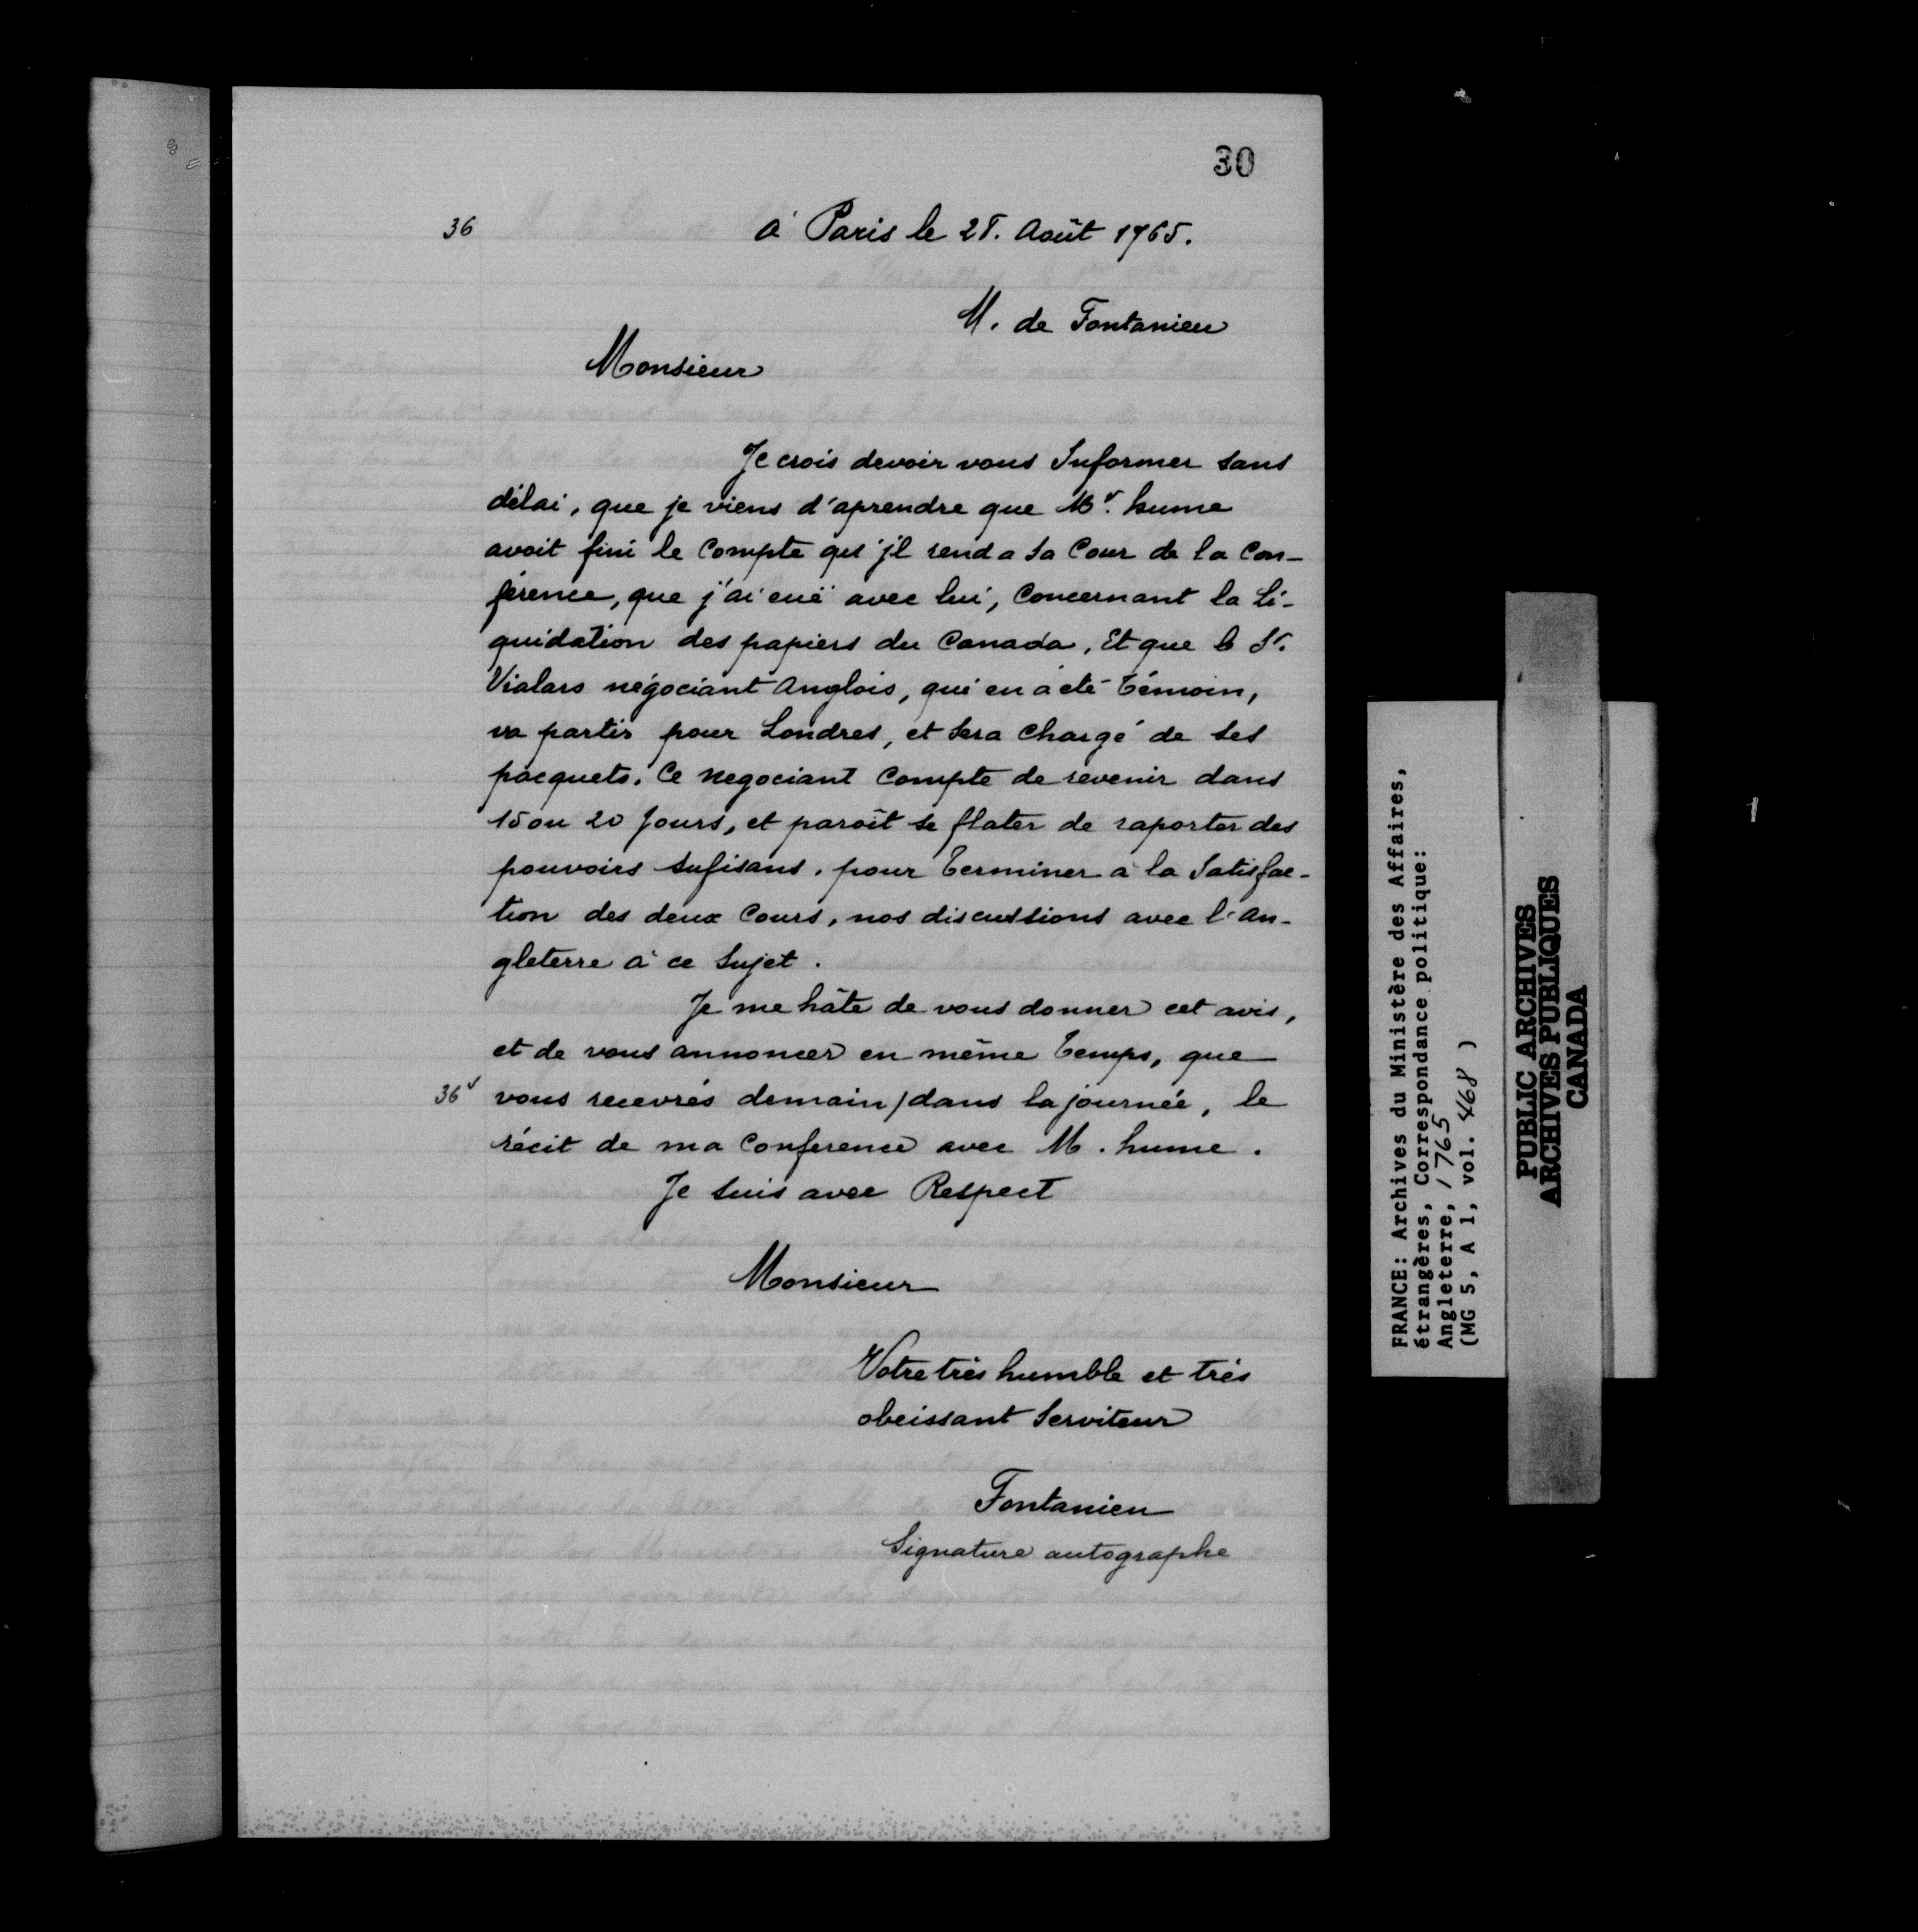 30
36
à Paris le 28. Août 1765.
M. de Fontanieu
Monsieur
Je crois devoir vous Informer sans
délai, que je viens d'aprendre que Mr. hume
avoit fini le Compte qu'jl rend a sa Cour de la Con-
ference, que j'ai euë avec lui, Concernant la Li-
quidation des papiers du Canada, Et que le Sr.
Vialars négociant Anglois, qui en a eté témoin,
va partir pour Londres, et sera Chargé de ses
pacquets. Ce negociant Compte de revenir dans
15 ou 20 Jours, et paroît se flater de raporter des
pouvoirs sufisans, pour terminer à la Satisfac-
tion des deux Cours, nos discussions avec l'an-
gleterre à ce Sujet.
Je me hâte de vous donner cet avis,
et de vous annoncer en même temps, que
36v vous recevrés demain / dans la journée, le
récit de ma Conference avec M. hume.
Je suis avec Respect
Monsieur
Votre très humble et très
obeissant Serviteur
Fontanieu
Signature autographe
FRANCE: Archives du Ministère des Affaires,
étrangères, Correspondance politique:
Angleterre, 1765
(MG 5, A 1, vol. 468 )
PUBLIC ARCHIVES
ARCHIVES PUBLIQUES
CANADA